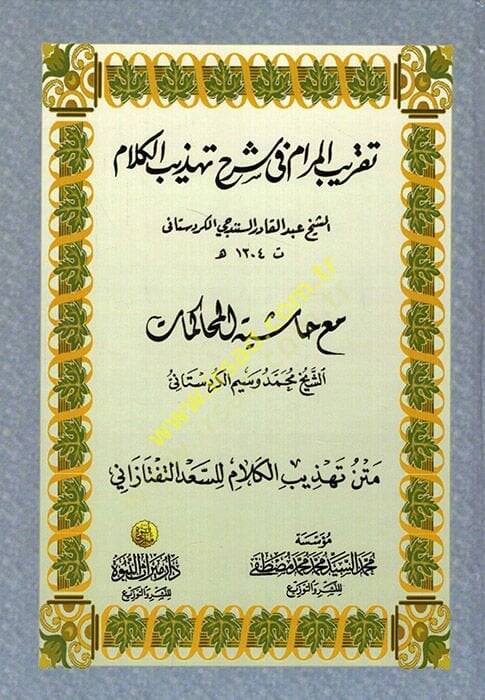 تقريب المرام في شرح تهذيب الكلام
الشيخ عبد القادر السنندجي الكردستاني
ت ١٣٠٤ هـ
مع حاشيته المحاكمات
الشَّيخ مُحَمَّد وسيم الكُردستَانيُ
مَتنُ تهذِيبِ الكَلامِ لِلسَّعدِ التَّفتَازَانِي
مؤسسة
محمد السيد محمد محمد مصطفى
للنشر والتوزيع
دار ميراث النبوة
للنشر والتوزيع